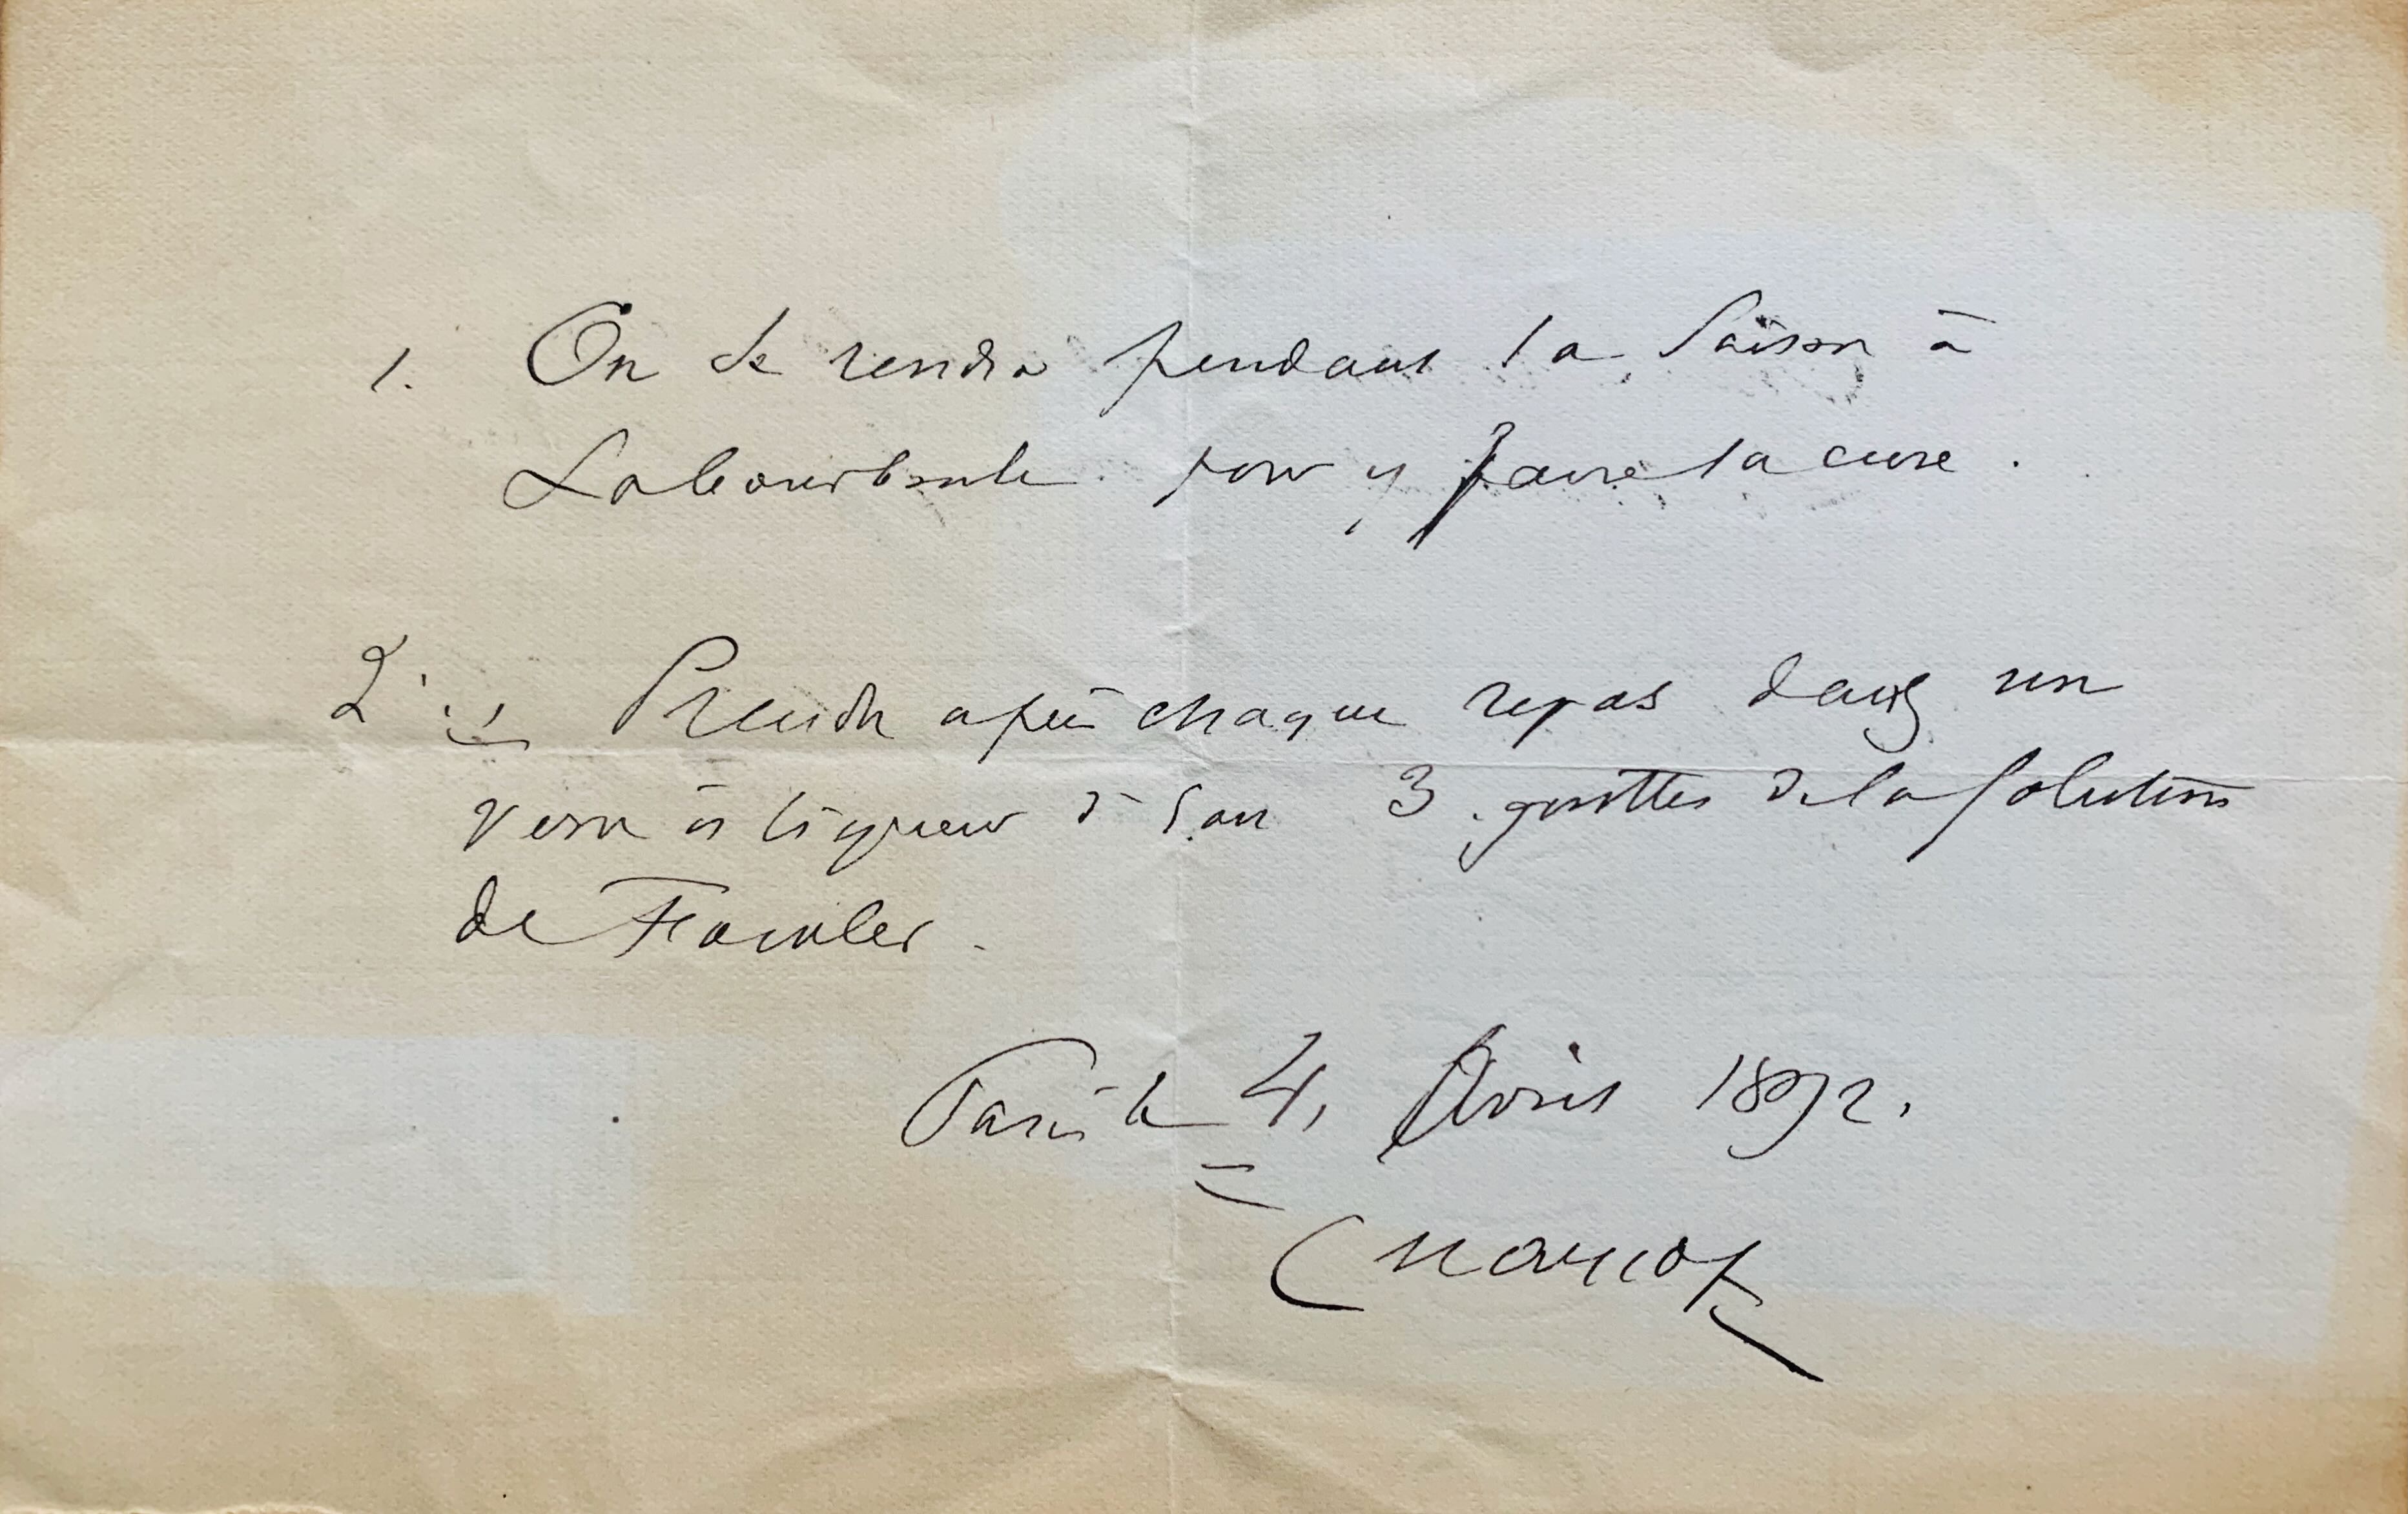 1. On se rendra pendant la saison à
Labourboule pour y faire la cure.
2° Prendre après chaque repas dans un
verre à liqueur d'eau 3 gouttes de la solution
de Fowler.
Paris le 4, Avril 1892.
Charcot